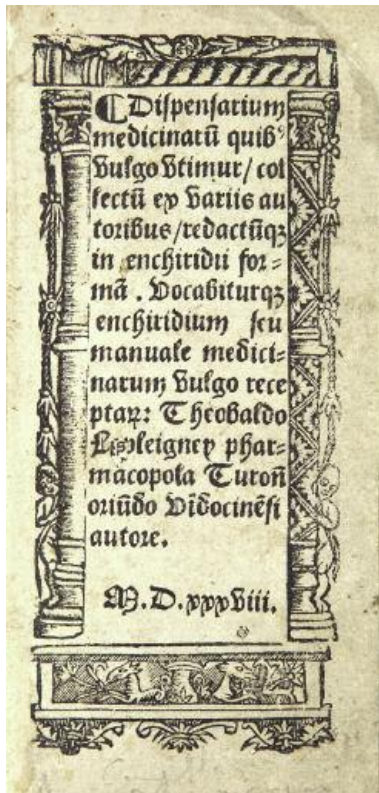 ⸿ Dispensarium
medicinarũ quibꝰ
vulgo vtimur/ col
lectũ ex variis au
toribus/redactũqꝫ
in enchiridii for⸗
mã . Vocabiturqꝫ
enchiridium seu
manuale medici⸗
narum vulgo rece
ptaꝝ: Theobaldo
phar⸗
macopola Turoñ
oriũdo Vĩdocinẽsi
autore.
M. D. xxxviii.